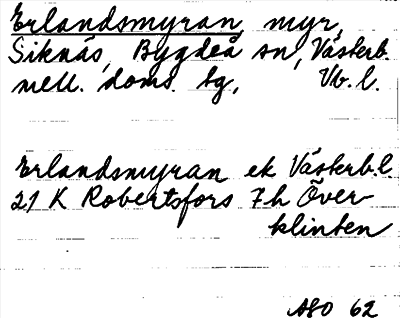 Erlandsmyran, myr,
Siknäs, Bygdeå sn, Västerb.
mell. doms. sg, Vb. l.
Erlandsmyran ek Västerb. l
21 K Robertsfors 7 h Över-
klinten
ASO 62